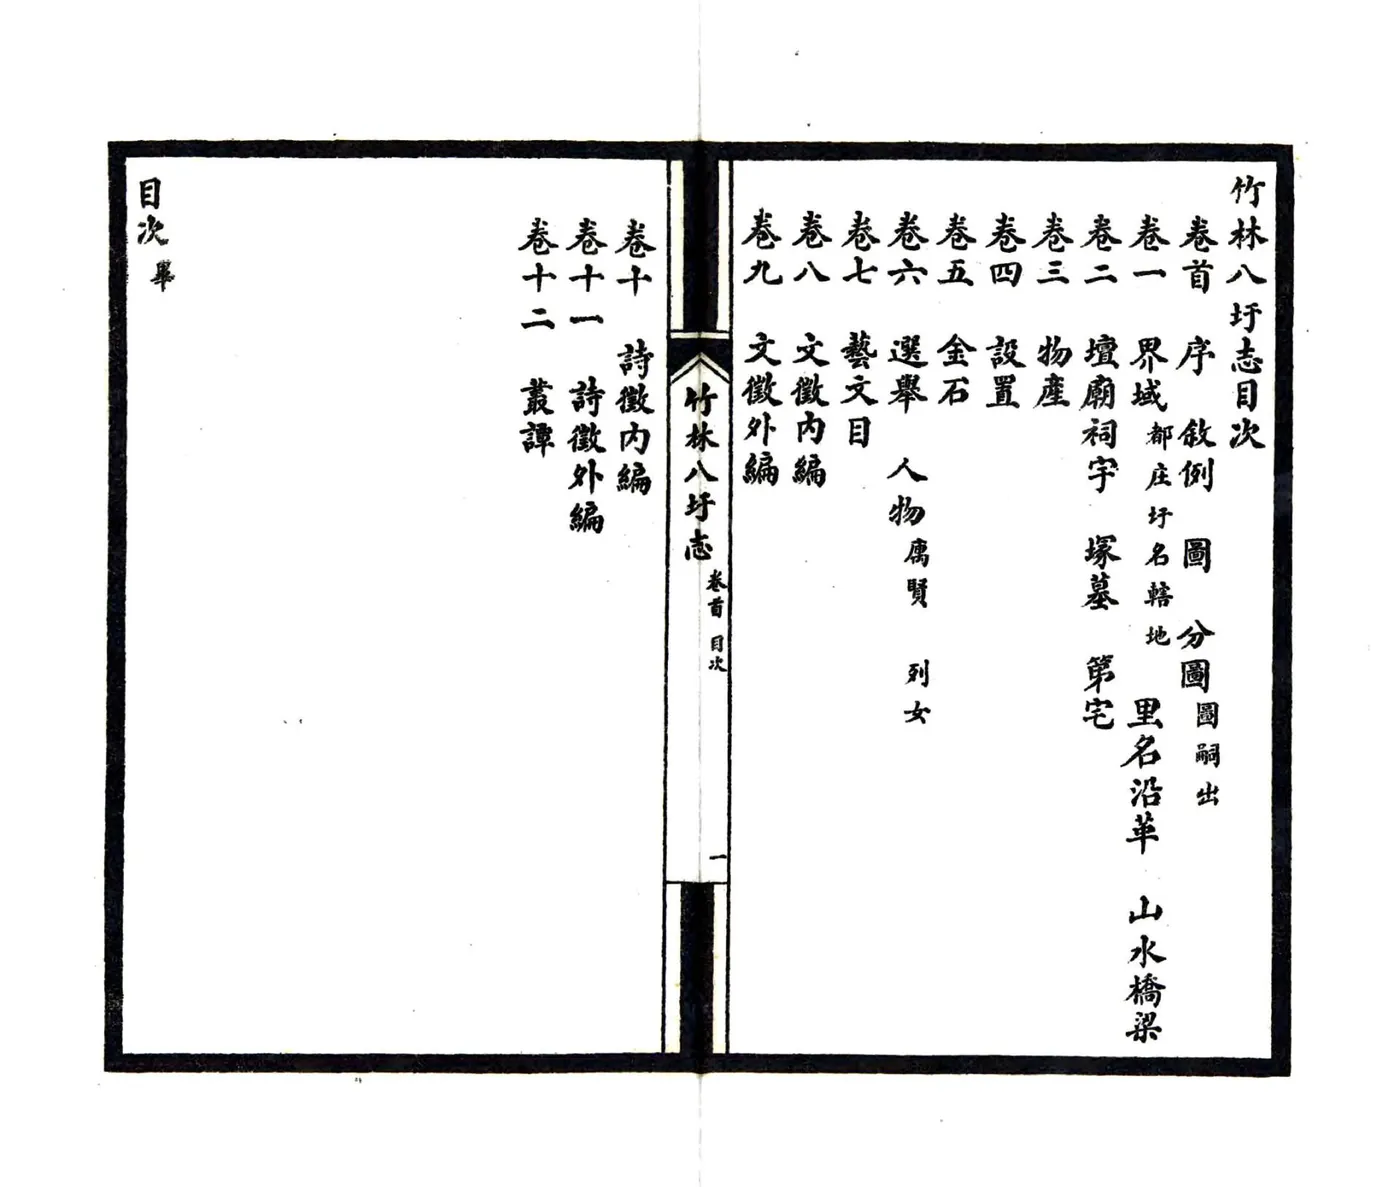 竹林八圩志目次
卷首 序 敘例 圖 分圖 圖嗣出
卷一 界域 都庄圩名轄地 里名沿革 山水橋梁
卷二 壇廟祠宇 塚墓 第宅
卷三 物產
卷四 設置
卷五 金石
卷六 選舉 人物 寓賢 列女
卷七 藝文目
卷八 文徵內編
卷九 文徵外編
竹林八圩志 卷首 目次 一
卷十 詩徵內編
卷十一 詩徵外編
卷十二 叢譚
目次 畢